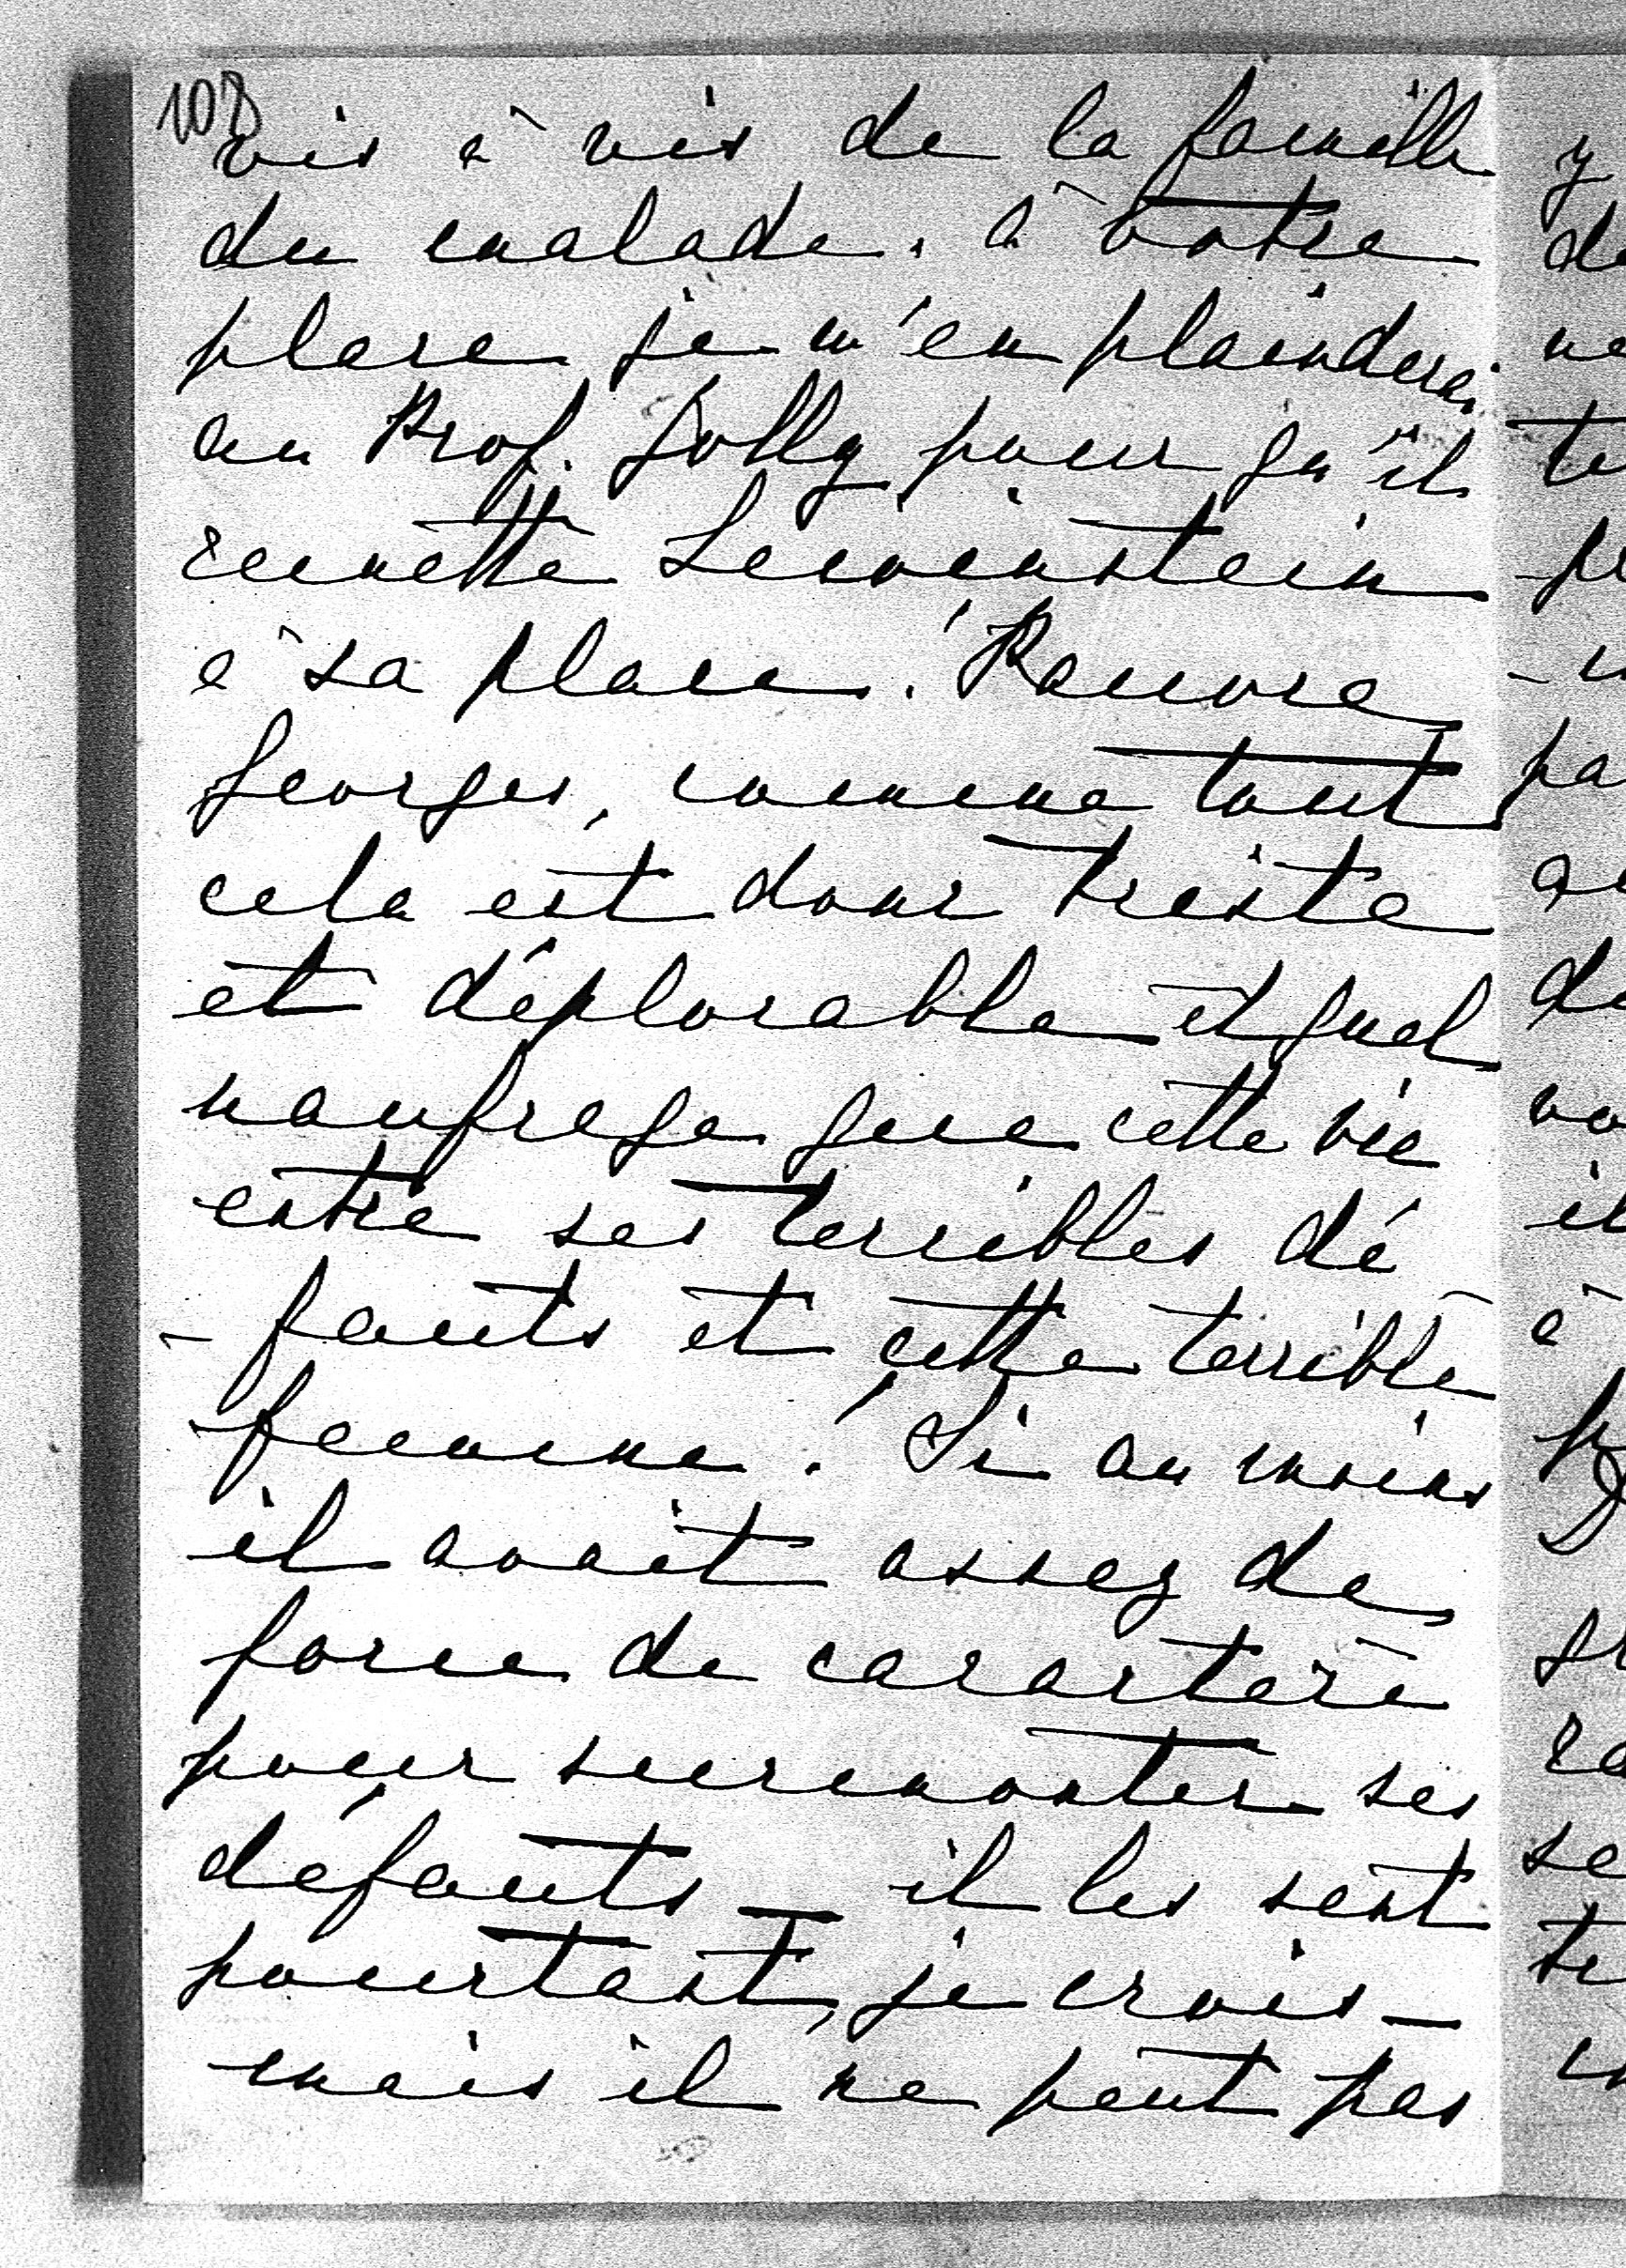 108
vis à vis de la famille
du malade. à votre
place je m'en plainderai
au Prof. Jolly pour qu'il
remette Leewenstein
à sa place! Pauvre
Georges, comme tout
cela est donc triste
et déplorable et quel
naufrage que cette vie
entre ses terribles dé
- fauts et cette terrible
femme! Si au moins
il avait assez de
force de caractère
pour surmonter ses
défauts _ il les sent
pourtant, je crois _
mais il ne peut pas